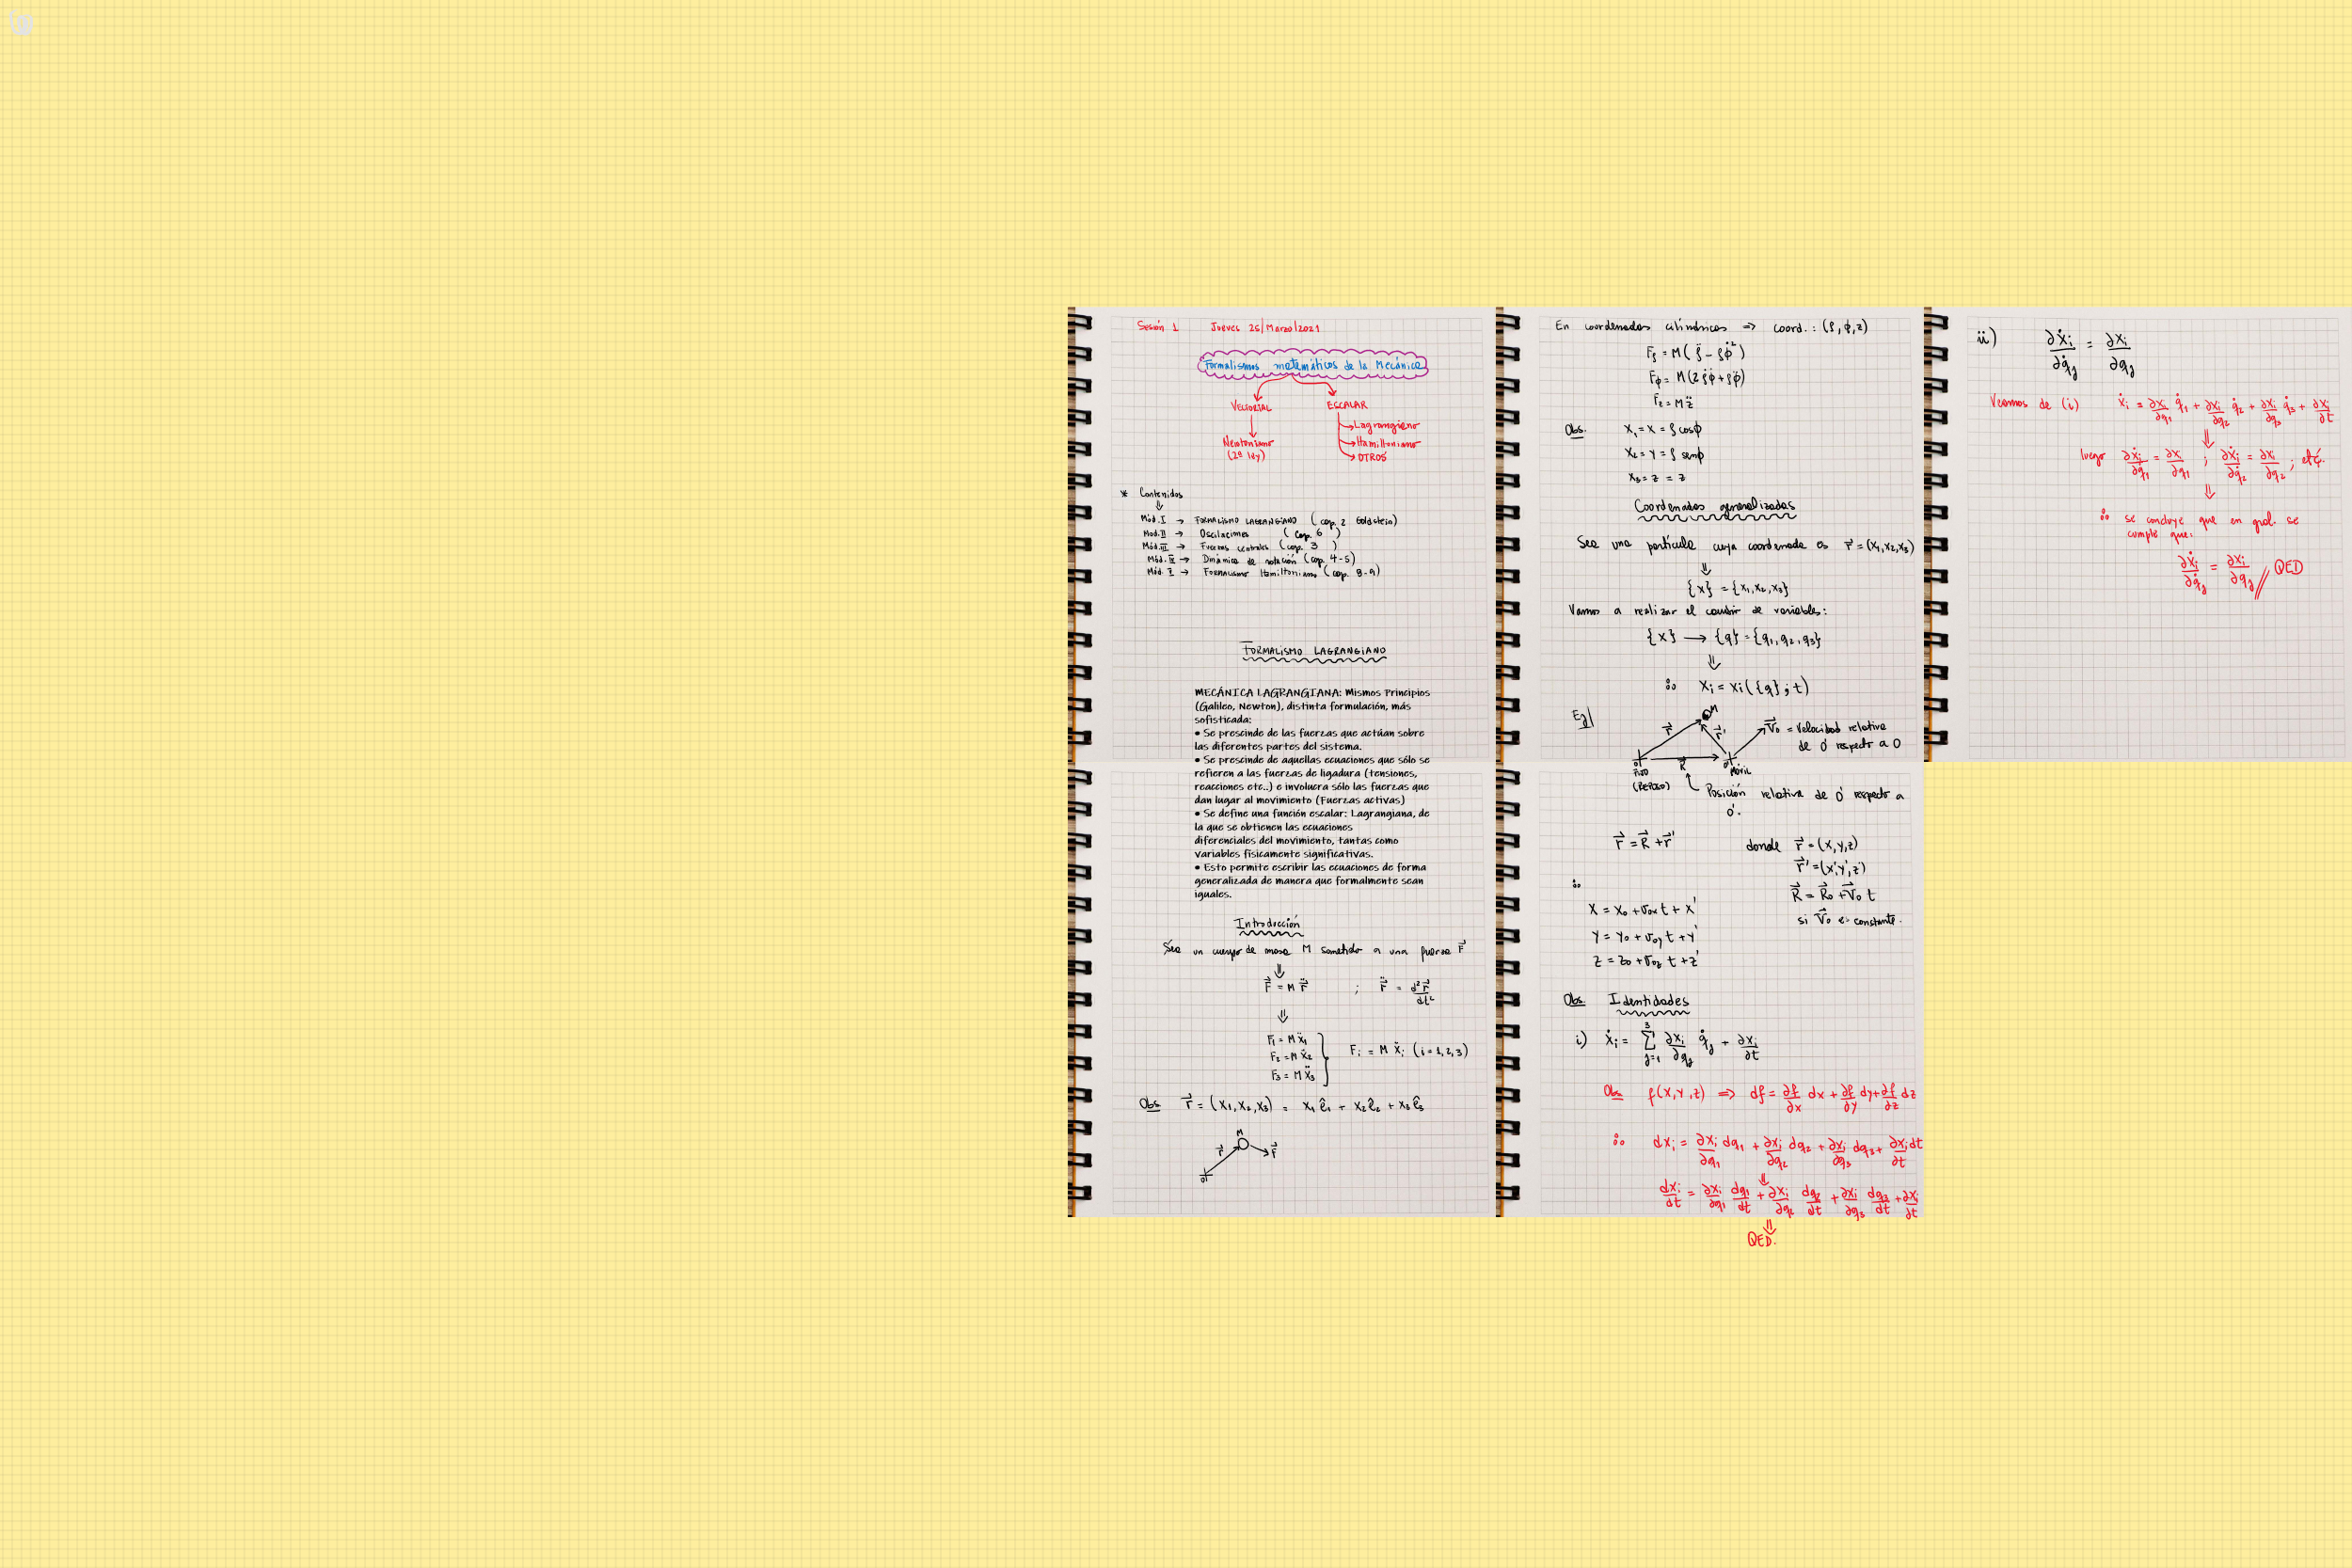 Sesión 1 Jueves 25/Marzo/2021
Formalismos matemáticos de la Mecánica
VECTORIAL ESCALAR
Newtoniano
(2ª ley)
Lagrangiano
Hamiltoniano
OTROS
* Contenidos
⇓
Mód. I → FORMALISMO LAGRANGIANO (cap. 2 Goldstein)
Mod. II → Oscilaciones (cap. 6)
Mód. III → Fuerzas centrales (cap. 3)
Mód. IV → Dinámica de rotación (cap. 4-5)
Mód. V → Formalismo Hamiltoniano (cap. 8-9)
FORMALISMO LAGRANGIANO
MECÁNICA LAGRANGIANA: Mismos Principios
(Galileo, Newton), distinta formulación, más
sofisticada:
• Se prescinde de las fuerzas que actúan sobre
las diferentes partes del sistema.
• Se prescinde de aquellas ecuaciones que sólo se
refieren a las fuerzas de ligadura (tensiones,
reacciones etc..) e involucra sólo las fuerzas que
dan lugar al movimiento (Fuerzas activas)
• Se define una función escalar: Lagrangiana, de
la que se obtienen las ecuaciones
diferenciales del movimiento, tantas como
variables físicamente significativas.
• Esto permite escribir las ecuaciones de forma
generalizada de manera que formalmente sean
iguales.
Introducción
Sea un cuerpo de masa M sometido a una fuerza F⃗
⇓
F⃗ = M r̈⃗ ; r̈⃗ = d²r⃗/dt²
⇓
F₁ = M ẍ₁
F₂ = M ẍ₂
F₃ = M ẍ₃
Fᵢ = M ẍᵢ (i = 1,2,3)
Obs r⃗ = (x₁, x₂, x₃) = x₁ ê₁ + x₂ ê₂ + x₃ ê₃
M
r⃗ F⃗
O
En coordenadas cilíndricas ⇒ coord.: (ρ, ϕ, z)
Fρ = M(ρ̈ - ρϕ̇²)
Fϕ = M(2ρ̇ϕ̇ + ρϕ̈)
Fz = M z̈
Obs. x₁ = x = ρ cosϕ
x₂ = y = ρ senϕ
x₃ = z = z
Coordenadas generalizadas
Sea una partícula cuya coordenada es r⃗ = (x₁, x₂, x₃)
⇓
{x} = {x₁, x₂, x₃}
Vamos a realizar el cambio de variables:
{x} → {q} = {q₁, q₂, q₃}
⇓
∴ xᵢ = xᵢ({q}; t)
Ej|
M
r⃗ r⃗' V⃗₀ = Velocidad relativa
de O' respecto a O
O R⃗ O'
FIJO MÓVIL
(REPOSO) Posición relativa de O' respecto a
O'.
r⃗ = R⃗ + r⃗' donde r⃗ = (x,y,z)
r⃗' = (x',y',z')
∴ R⃗ = R⃗₀ + V⃗₀ t
si V⃗₀ es constante.
x = x₀ + v₀ₓ t + x'
y = y₀ + v₀y t + y'
z = z₀ + v₀z t + z'
Obs. Identidades
i) ẋᵢ = Σ³ⱼ₌₁ ∂xᵢ/∂qⱼ q̇ⱼ + ∂xᵢ/∂t
Obs f(x,y,z) ⇒ df = ∂f/∂x dx + ∂f/∂y dy + ∂f/∂z dz
∴ dxᵢ = ∂xᵢ/∂q₁ dq₁ + ∂xᵢ/∂q₂ dq₂ + ∂xᵢ/∂q₃ dq₃ + ∂xᵢ/∂t dt
⇓
dxᵢ/dt = ∂xᵢ/∂q₁ dq₁/dt + ∂xᵢ/∂q₂ dq₂/dt + ∂xᵢ/∂q₃ dq₃/dt + ∂xᵢ/∂t
⇓
QED.
ii) ∂ẋᵢ/∂q̇ⱼ = ∂xᵢ/∂qⱼ
Veamos de (i) ẋᵢ = ∂xᵢ/∂q₁ q̇₁ + ∂xᵢ/∂q₂ q̇₂ + ∂xᵢ/∂q₃ q̇₃ + ∂xᵢ/∂t
⇓
luego ∂ẋᵢ/∂q̇₁ = ∂xᵢ/∂q₁ ; ∂ẋᵢ/∂q̇₂ = ∂xᵢ/∂q₂ ; etc.
⇓
∴ se concluye que en gral. se
cumple que:
∂ẋᵢ/∂q̇ⱼ = ∂xᵢ/∂qⱼ // QED